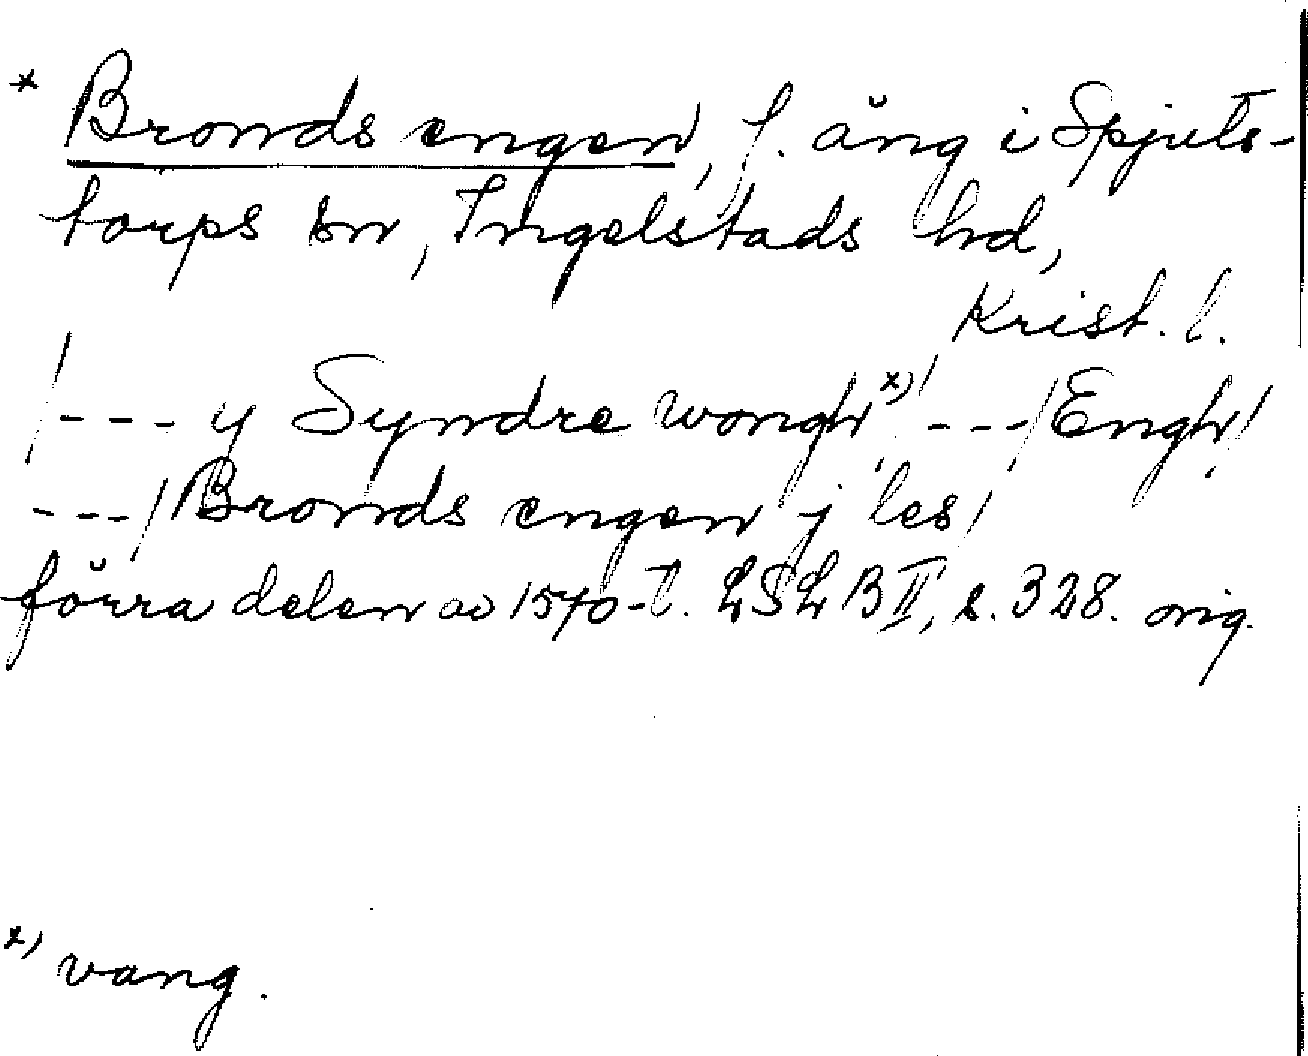 * Bronds engen, f. äng i Spjuts-
torps sn, Ingelstads hd,
Krist. l.
/--- y Syndre wongh x) / ---/ Engh /
---/ Bronds engen j les /
förra delen av 1570-t. LSLB II, s. 328. orig.
x) vang.